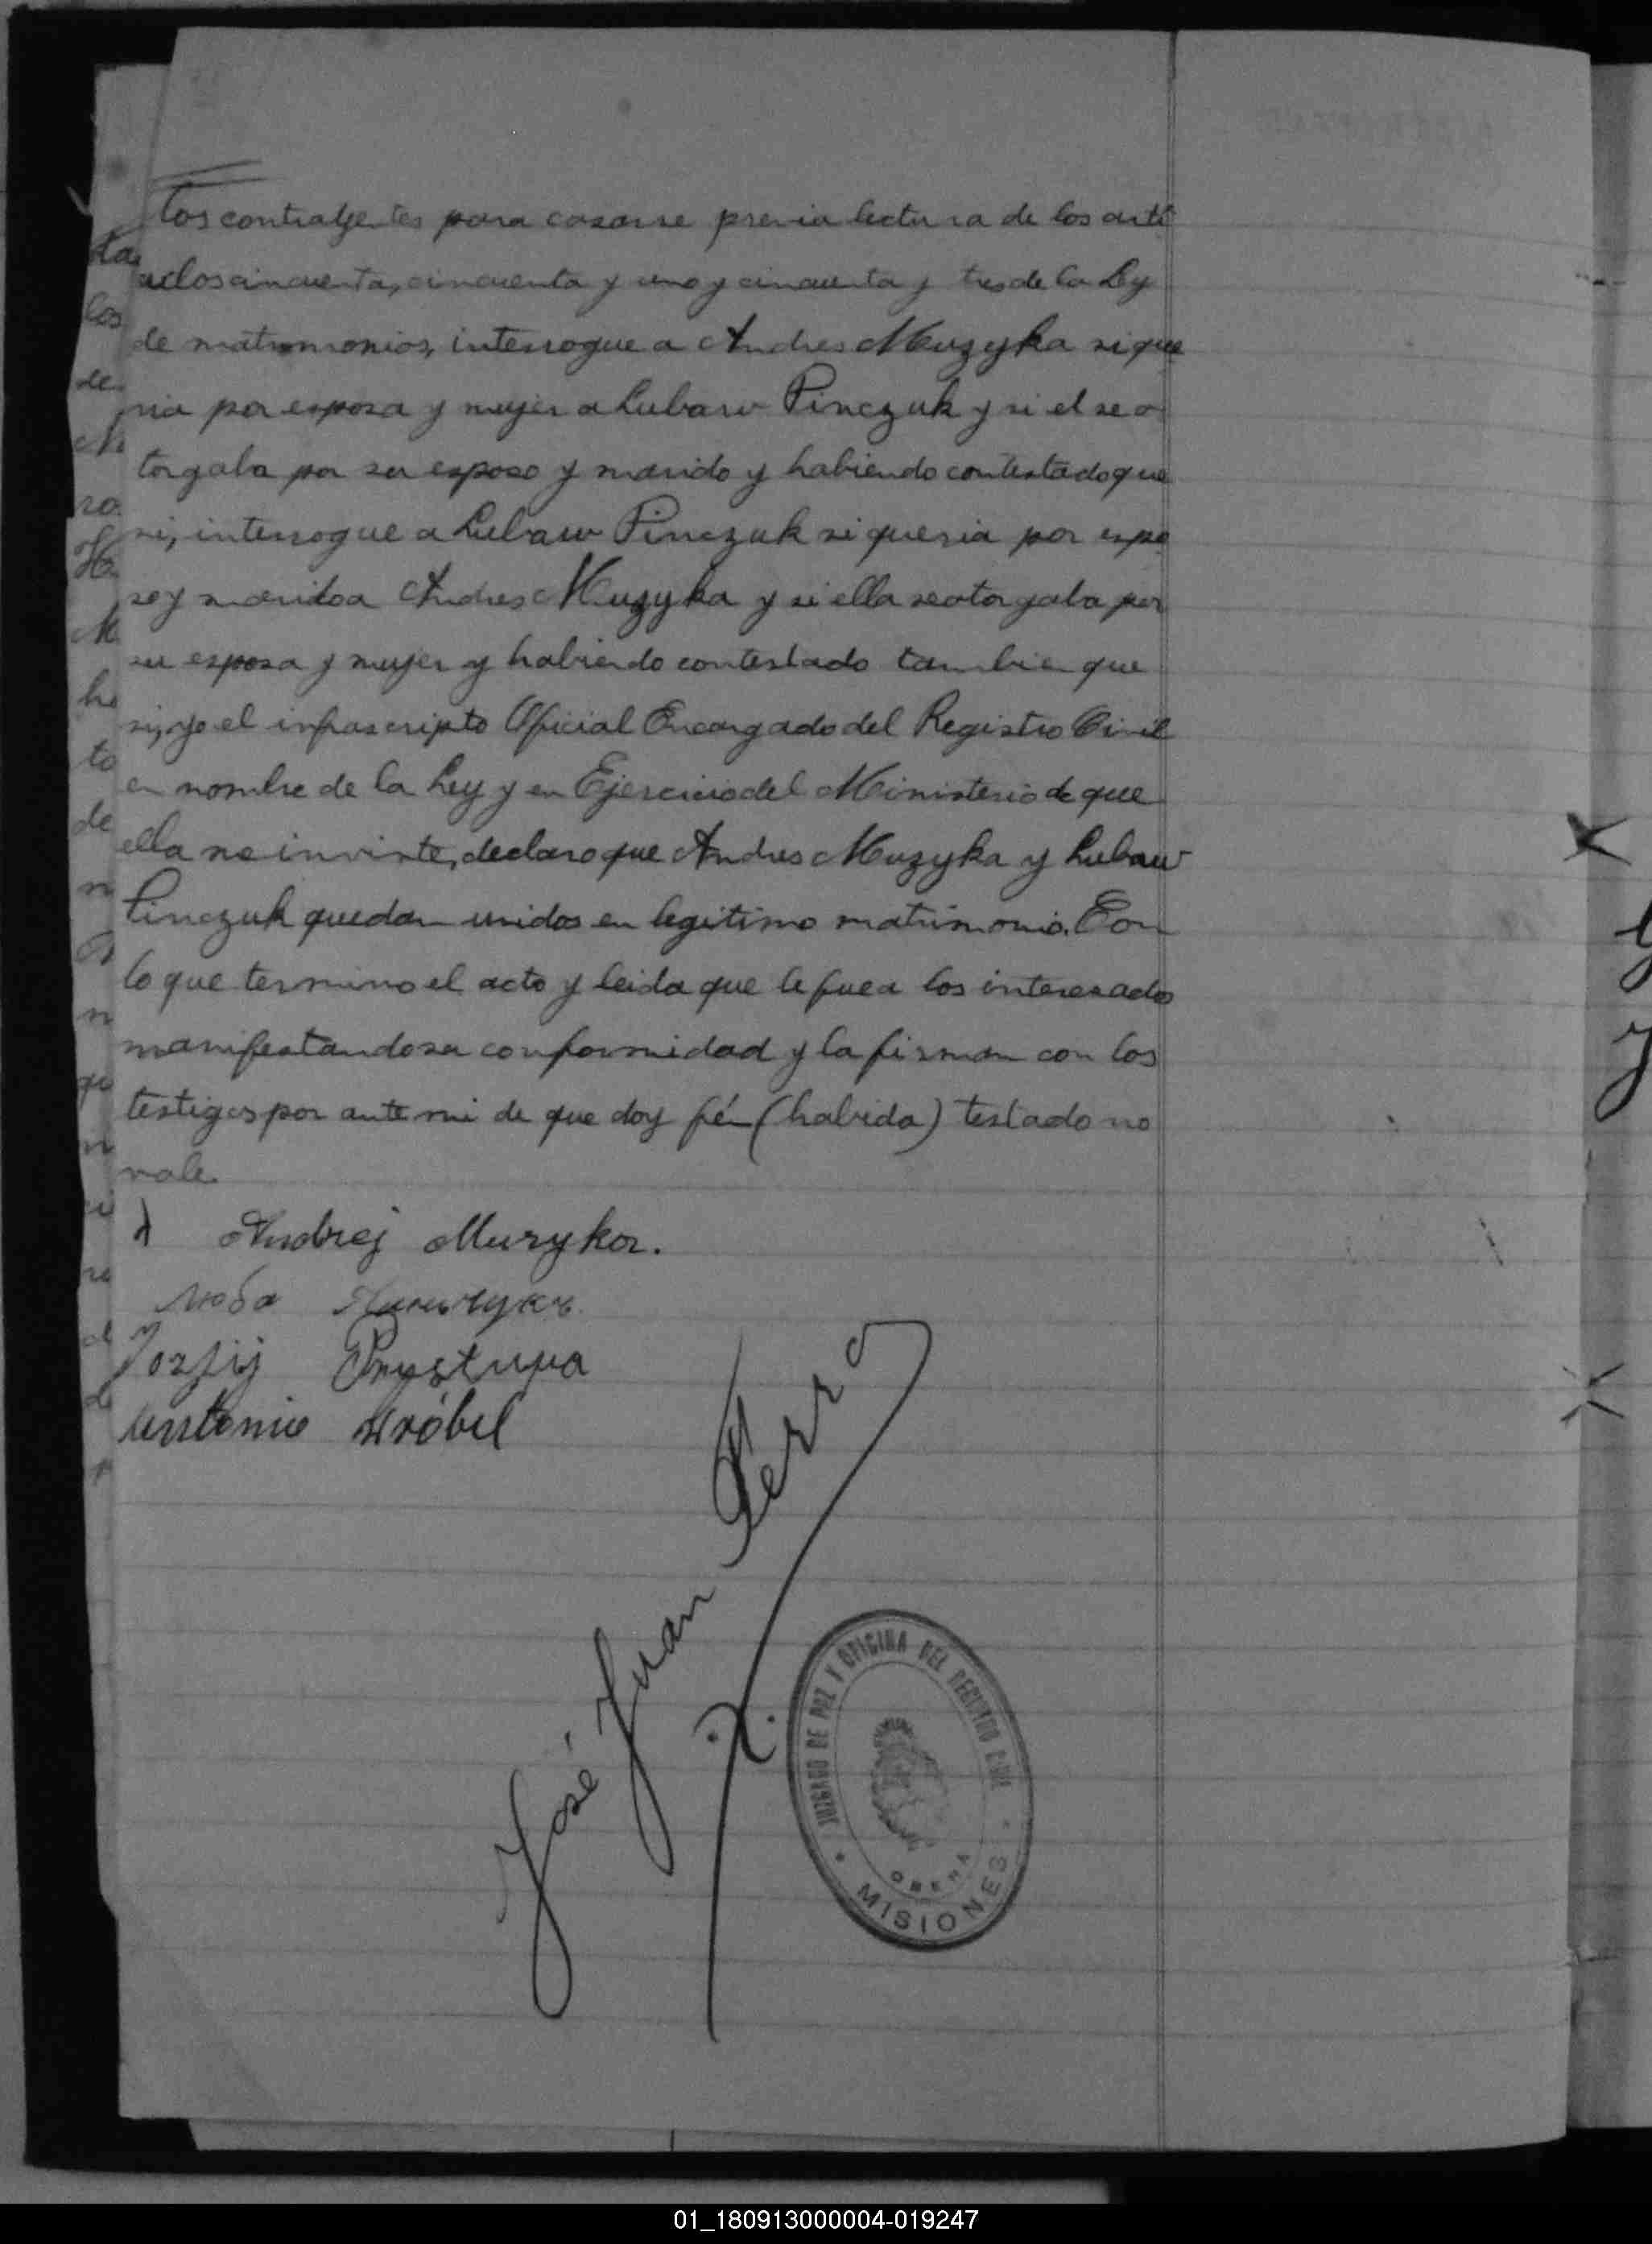 los contrayentes para casarse previa lectura de los arti
culos cincuenta, cincuenta y uno y cincuenta y tres de la Ley
de matrimonios, interrogue a Andres Muzyka si que
ria por esposa y mujer a Lubaw Pinczuk y si el se o
torgaba por su esposo y marido y habiendo contestado que
si, interrogue a Lubaw Pinczuk si queria por espo
so y marido a Andres Muzyka y si ella se otorgaba por
su esposa y mujer y habiendo contestado tambien que
si, yo el infrascripto Oficial Encargado del Registro Civil
en nombre de la Ley y en Ejercicio del Ministerio de que
ella me inviste, declaro que Andres Muzyka y Lubaw
Pinczuk quedan unidos en legitimo matrimonio. Con
lo que termino el acto y leida que le fue a los interesados
manifestando su conformidad y la firman con los
testigos por ante mi de que doy fé (habida) testado no
vale.
Andrej Muzyka.
Люба Пинчукъ.
Jozfij Prystupa
Antonio Wróbel
José Juan Perro
JUZGADO DE PAZ Y OFICINA DEL REGISTRO CIVIL
OBERA
MISIONES
ta
los
de
ro
M
he
to
de
n
n
qu
n
ci
re
d
de
01_180913000004-019247